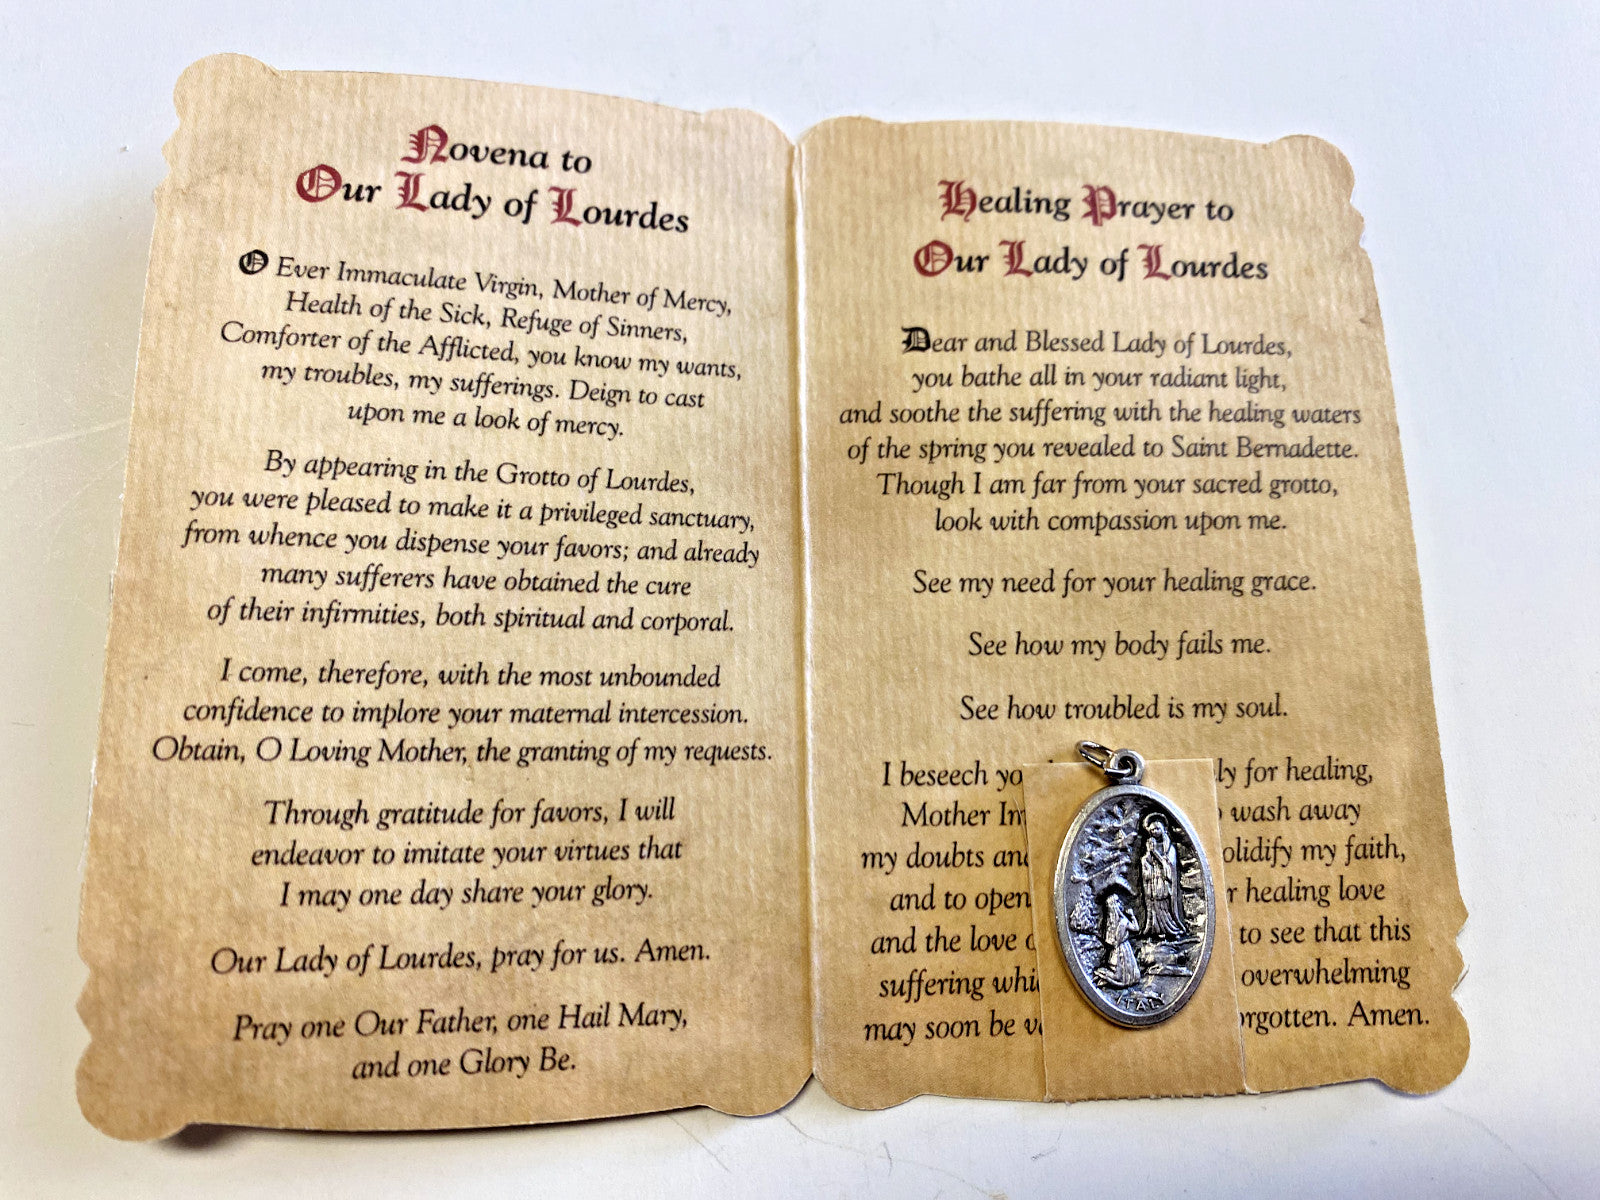 Novena to
Our Lady of Lourdes
O Ever Immaculate Virgin, Mother of Mercy,
Health of the Sick, Refuge of Sinners,
Comforter of the Afflicted, you know my wants,
my troubles, my sufferings. Deign to cast
upon me a look of mercy.
By appearing in the Grotto of Lourdes,
you were pleased to make it a privileged sanctuary,
from whence you dispense your favors; and already
many sufferers have obtained the cure
of their infirmities, both spiritual and corporal.
I come, therefore, with the most unbounded
confidence to implore your maternal intercession.
Obtain, O Loving Mother, the granting of my requests.
Through gratitude for favors, I will
endeavor to imitate your virtues that
I may one day share your glory.
Our Lady of Lourdes, pray for us. Amen.
Pray one Our Father, one Hail Mary,
and one Glory Be.
Healing Prayer to
Our Lady of Lourdes
Dear and Blessed Lady of Lourdes,
you bathe all in your radiant light,
and soothe the suffering with the healing waters
of the spring you revealed to Saint Bernadette.
Though I am far from your sacred grotto,
look with compassion upon me.
See my need for your healing grace.
See how my body fails me.
See how troubled is my soul.
I beseech for healing,
Mother wash away
my doubts my faith,
and to open healing love
and the love to see that this
suffering overwhelming
may soon be Amen.
ITALY